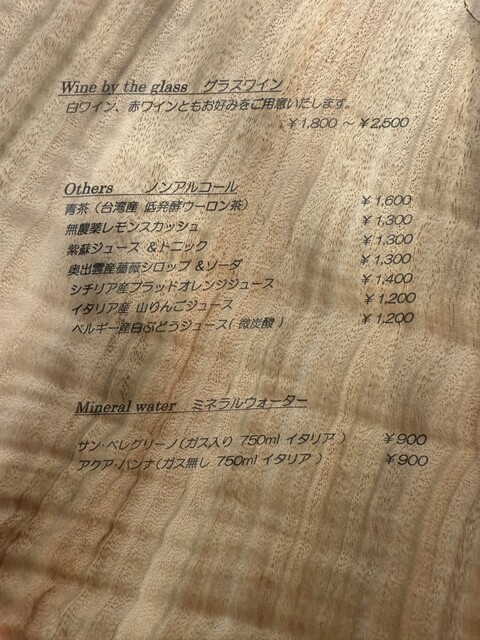 Wine by the glass　グラスワイン
白ワイン、赤ワインともお好みをご用意いたします。
￥1,800 ～ ￥2,500
Others　ノンアルコール
青茶（台湾産 低発酵ウーロン茶） ￥1,600
無農薬レモンスカッシュ ￥1,300
紫蘇ジュース ＆トニック ￥1,300
奥出雲産薔薇シロップ ＆ソーダ ￥1,300
シチリア産ブラッドオレンジジュース ￥1,400
イタリア産 山りんごジュース ￥1,200
ベルギー産白ぶどうジュース( 微炭酸 ) ￥1,200
Mineral water　ミネラルウォーター
サン・ペレグリーノ(ガス入り 750ml イタリア ) ￥900
アクア・パンナ(ガス無し 750ml イタリア ) ￥900